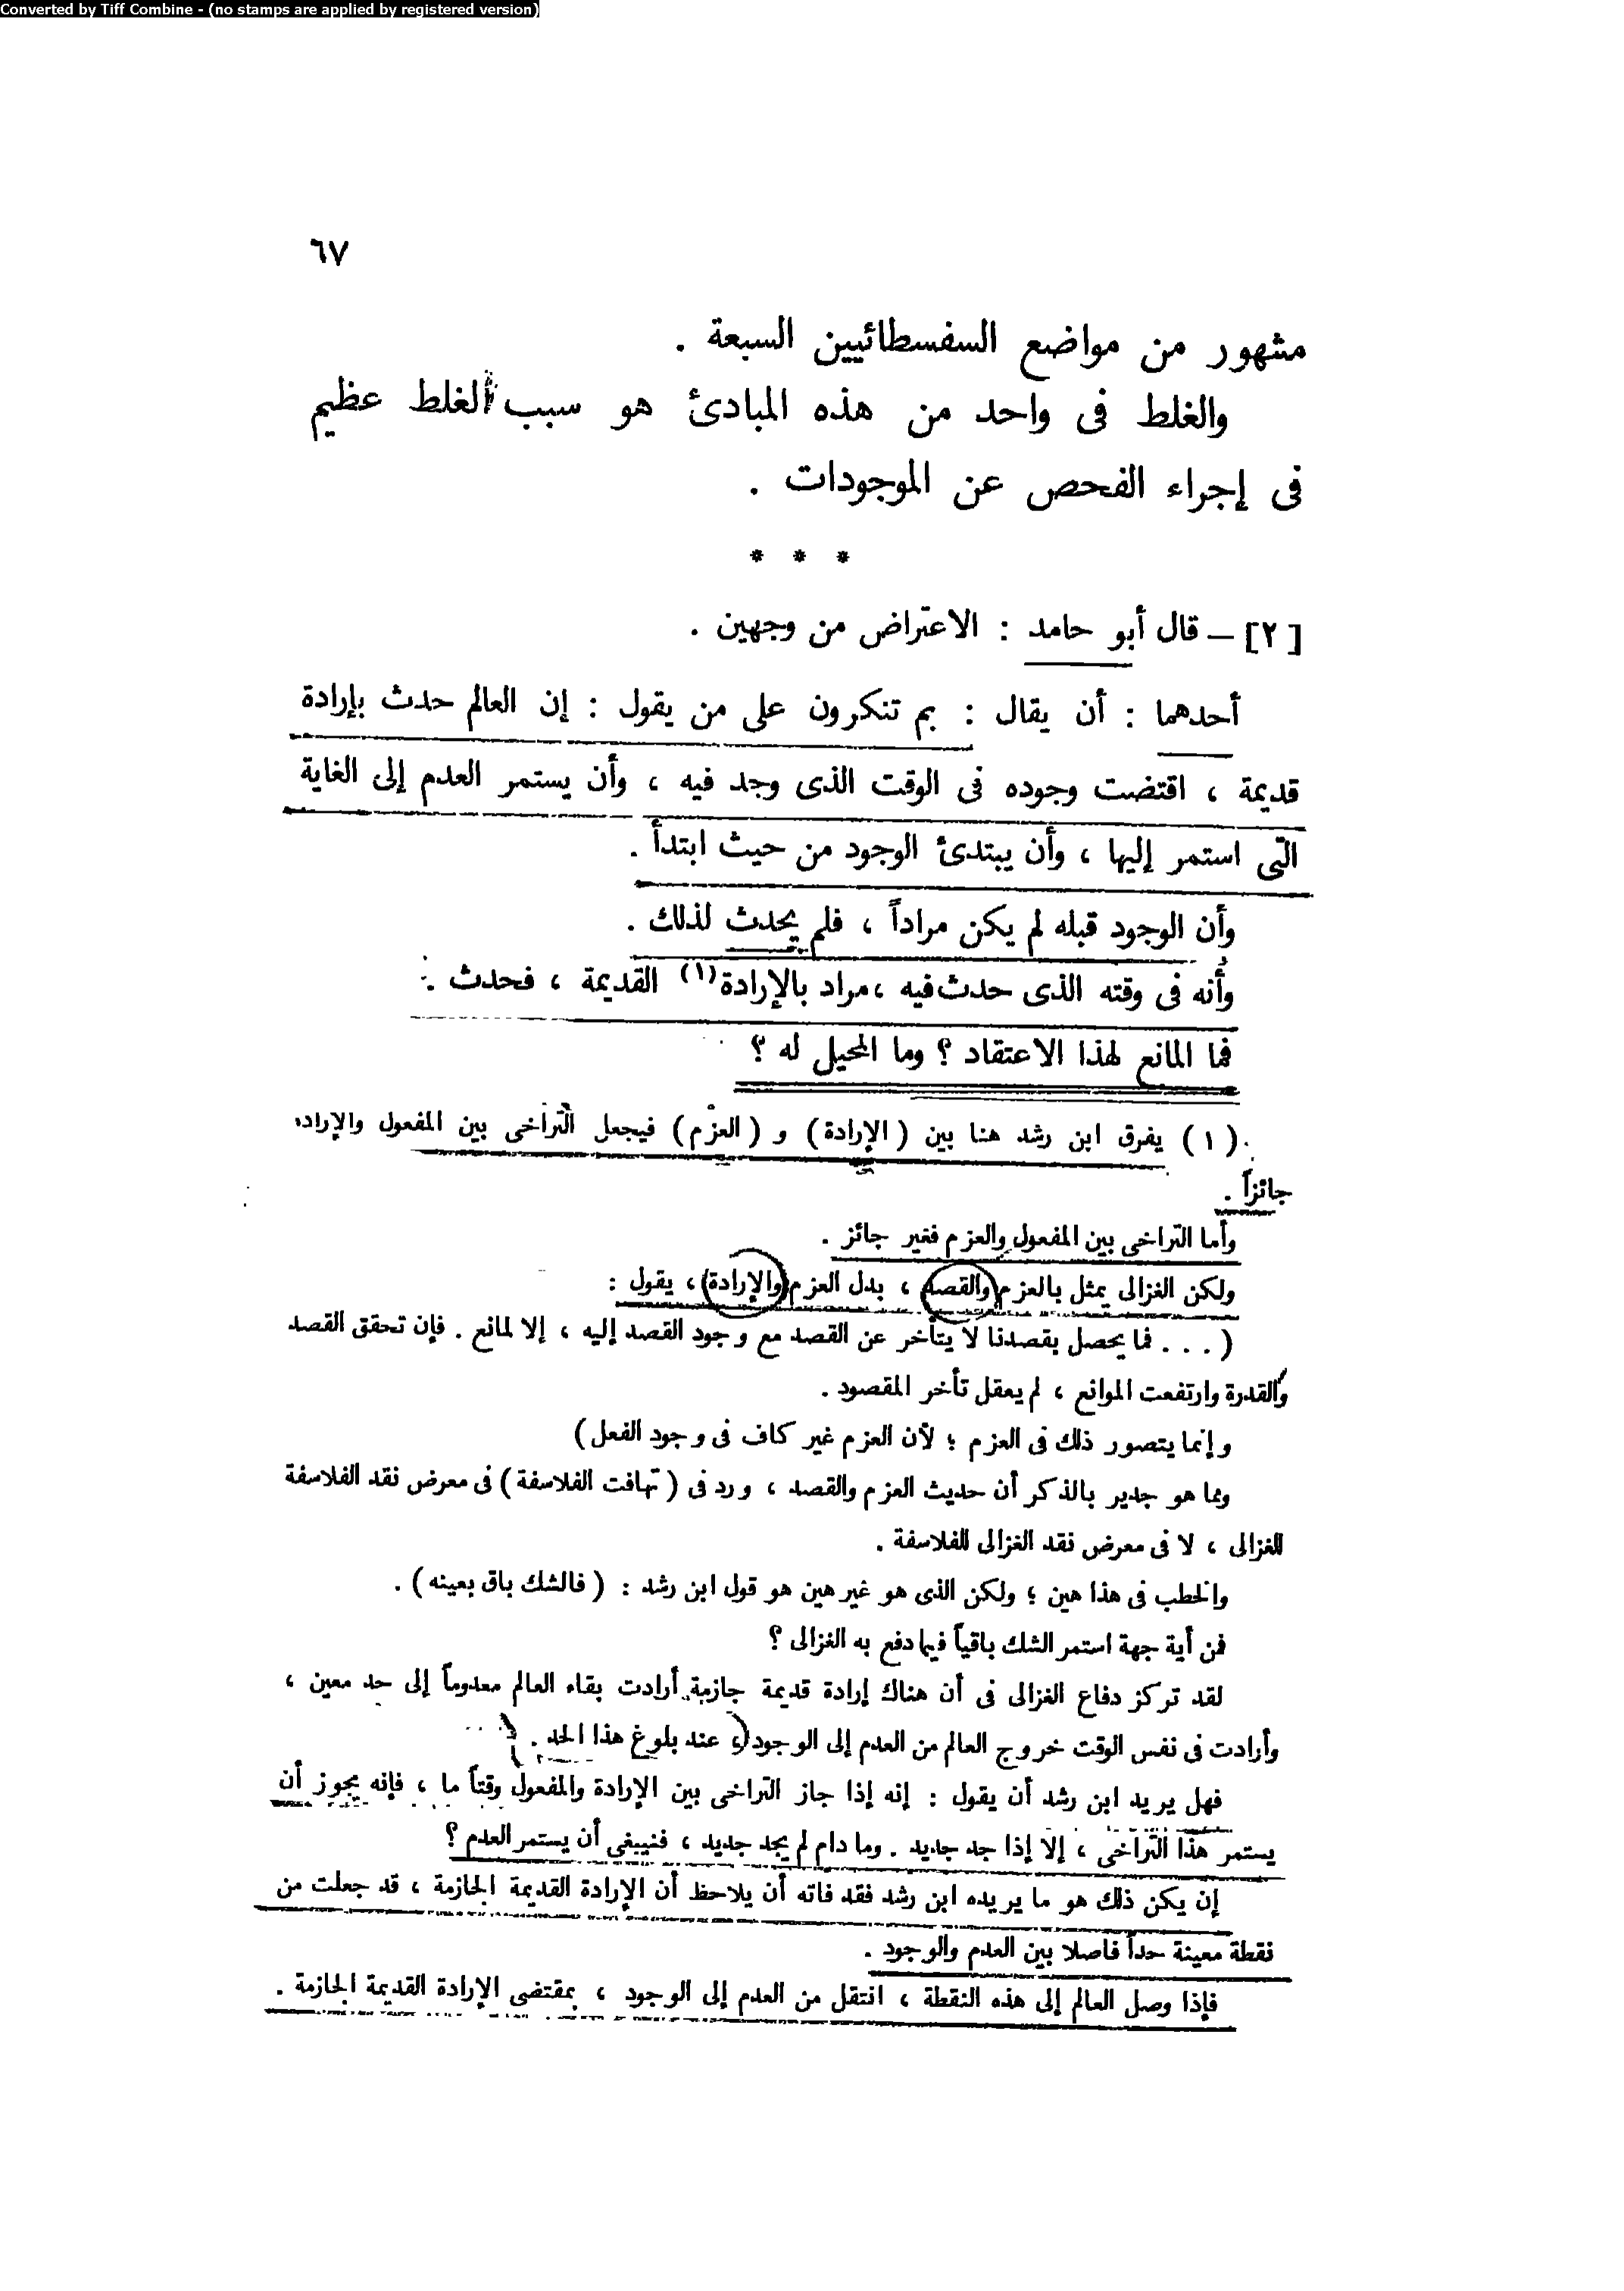 Converted by Tiff Combine - (no stamps are applied by registered version)
٦٧
مشهور من مواضع السفسطائيين السبعة .
والغلط فى واحد من هذه المبادئ هو سبب الغلط عظيم
فى إجراء الفحص عن الموجودات .
* * *
[٢] – قال أبو حامد : الاعتراض من وجهين .
أحدهما : أن يقال : بم تنكرون على من يقول : إن العالم حدث بإرادة
قديمة ، اقتضت وجوده فى الوقت الذى وجد فيه ، وأن يستمر العدم إلى الغاية
التى استمر إليها ، وأن يبتدئ الوجود من حيث ابتدأ .
وأن الوجود قبله لم يكن مراداً ، فلم يحدث لذلك .
وأنه فى وقته الذى حدث فيه ، مراد بالإرادة (١) القديمة ، فحدث .
فما المانع لهذا الاعتقاد ؟ وما المحيل له ؟
(١) يفرق ابن رشد هنا بين ( الإرادة ) و ( العزم ) فيجعل التراخى بين المفعول والإرادة
جائزاً .
وأما التراخى بين المفعول والعزم فغير جائز .
ولكن الغزالى يمثل بالعزم والقصد ، بدل العزم والإرادة ، يقول :
( . . . فما يحصل بقصدنا لا يتأخر عن القصد مع وجود القصد إليه ، إلا لمانع . فإن تحقق القصد
والقدرة وارتفعت الموانع ، لم يعقل تأخر المقصود .
وإنما يتصور ذلك فى العزم ؛ لأن العزم غير كاف فى وجود الفعل )
ومما هو جدير بالذكر أن حديث العزم والقصد ، ورد فى ( تهافت الفلاسفة ) فى معرض نقد الفلاسفة
للغزالى ، لا فى معرض نقد الغزالى للفلاسفة .
والخطب فى هذا هين ؛ ولكن الذى هو غير هين هو قول ابن رشد : ( فالشك باق بعينه ) .
فمن أية جهة استمر الشك باقياً فيما دفع به الغزالى ؟
لقد تركز دفاع الغزالى فى أن هناك إرادة قديمة جازمة أرادت بقاء العالم معدوماً إلى حد معين ،
وأرادت فى نفس الوقت خروج العالم من العدم إلى الوجود ، عند بلوغ هذا الحد .
فهل يريد ابن رشد أن يقول : إنه إذا جاز التراخى بين الإرادة والمفعول وقتاً ما ، فإنه يجوز أن
يستمر هذا التراخى ، إلا إذا جد جديد . وما دام لم يجد جديد ، فنيبغى أن يستمر العدم ؟
إن يكن ذلك هو ما يريده ابن رشد فقد فاته أن يلاحظ أن الإرادة القديمة الجازمة ، قد جعلت من
نقطة معينة حداً فاصلا بين العدم والوجود .
فإذا وصل العالم إلى هذه النقطة ، انتقل من العدم إلى الوجود ، بمقتضى الإرادة القديمة الجازمة .